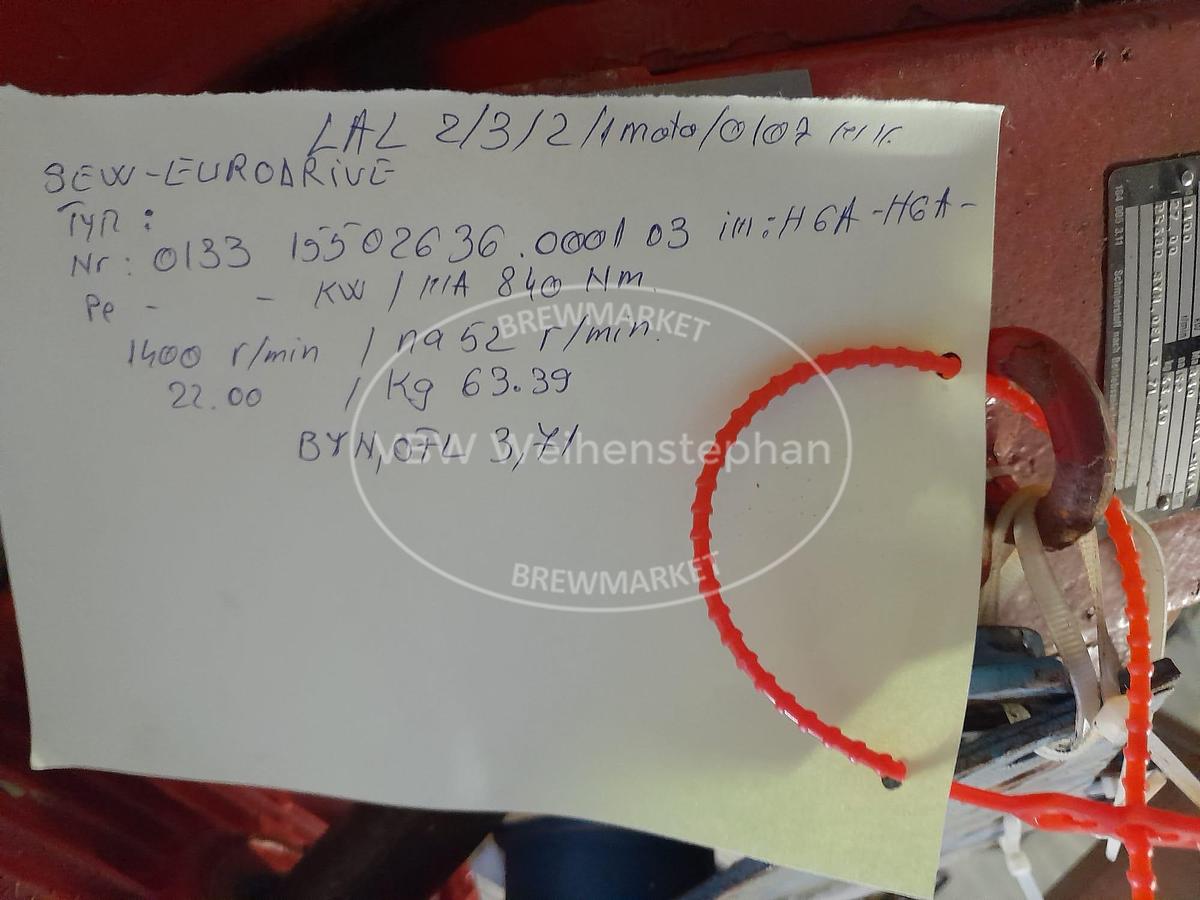 LAL 2/3/2/1moto/0107
SEW-EURODRIVE
Typ:
Nr: 0133 15502636.0001 03 im: H6A-H6A-
Pe - - KW / MA 840 Nm.
1400 r/min / na 52 r/min.
22.00 / Kg 63.39
BYN, OEL 3,71
BREWMARKET
VBW Weihenstephan
BREWMARKET